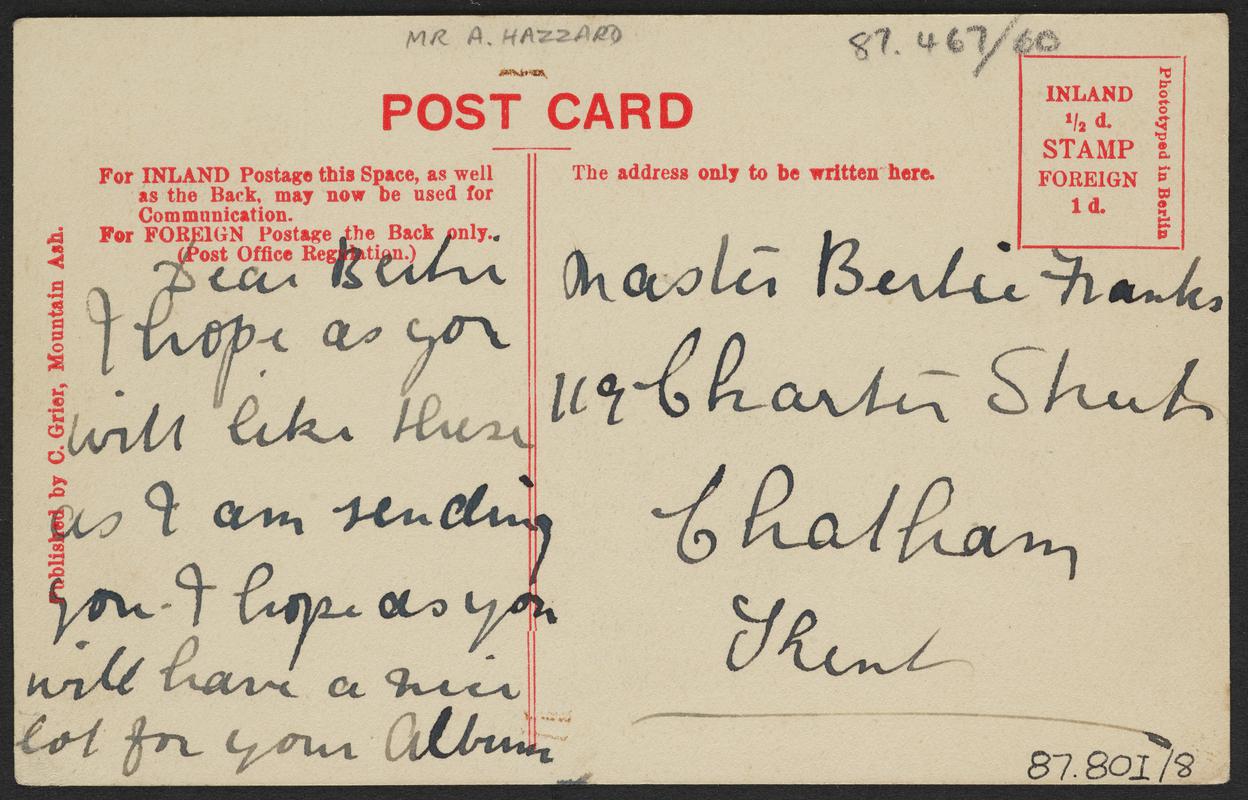 MR A. HAZZARD
87.467/60
POST CARD
For INLAND Postage this Space, as well
as the Back, may now be used for
Communication.
For FOREIGN Postage the Back only.
(Post Office Regulation.)
The address only to be written here.
INLAND
1/2 d.
STAMP
FOREIGN
1 d.
Phototyped in Berlin
Published by C. Grier, Mountain Ash.
Dear Bertie
I hope as you
will like these
as I am sending
you. I hope as you
will have a nice
lot for your Album
Master Bertie Franks
119 Charter Street
Chatham
Kent
87.80I/8